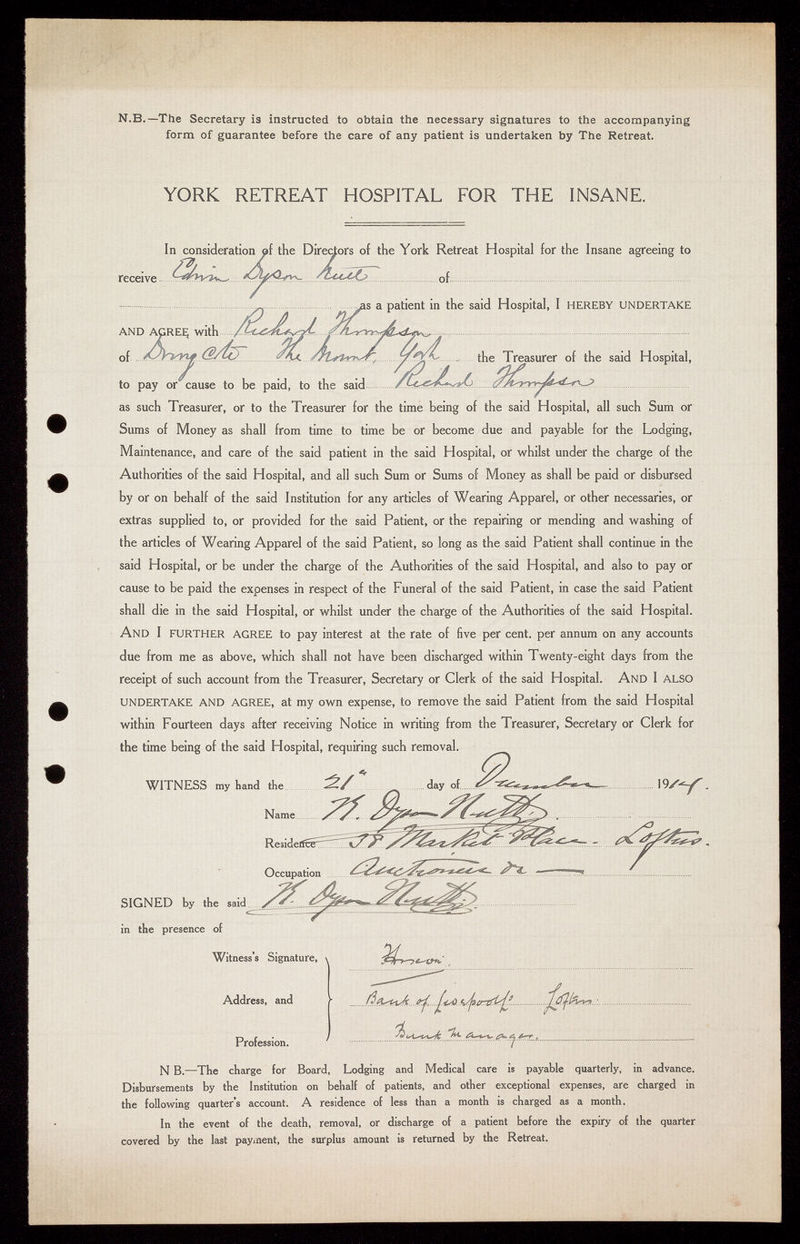 N.B.—The Secretary is instructed to obtain the necessary signatures to the accompanying
form of guarantee before the care of any patient is undertaken by The Retreat.
YORK RETREAT HOSPITAL FOR THE INSANE.
In consideration of the Directors of the York Retreat Hospital for the Insane agreeing to
receive Edwin Dyson Nutt of
as a patient in the said Hospital, I HEREBY UNDERTAKE
AND AGREE with Richard Thompson
of Dringcote The Mount, York the Treasurer of the said Hospital,
to pay or cause to be paid, to the said Richard Thompson
as such Treasurer, or to the Treasurer for the time being of the said Hospital, all such Sum or
Sums of Money as shall from time to time be or become due and payable for the Lodging,
Maintenance, and care of the said patient in the said Hospital, or whilst under the charge of the
Authorities of the said Hospital, and all such Sum or Sums of Money as shall be paid or disbursed
by or on behalf of the said Institution for any articles of Wearing Apparel, or other necessaries, or
extras supplied to, or provided for the said Patient, or the repairing or mending and washing of
the articles of Wearing Apparel of the said Patient, so long as the said Patient shall continue in the
said Hospital, or be under the charge of the Authorities of the said Hospital, and also to pay or
cause to be paid the expenses in respect of the Funeral of the said Patient, in case the said Patient
shall die in the said Hospital, or whilst under the charge of the Authorities of the said Hospital.
AND I FURTHER AGREE to pay interest at the rate of five per cent. per annum on any accounts
due from me as above, which shall not have been discharged within Twenty-eight days from the
receipt of such account from the Treasurer, Secretary or Clerk of the said Hospital. AND I ALSO
UNDERTAKE AND AGREE, at my own expense, to remove the said Patient from the said Hospital
within Fourteen days after receiving Notice in writing from the Treasurer, Secretary or Clerk for
the time being of the said Hospital, requiring such removal.
WITNESS my hand the 21st day of December 1914.
Name Dyson Nutt
Residence Market Place. Loftus.
Occupation Auctioneer &c
SIGNED by the said Dyson Nutt
in the presence of
Witness's Signature,
Address, and Bank of Liverpool Ld Loftus.
Profession. Bank Manager.
N B.—The charge for Board, Lodging and Medical care is payable quarterly, in advance.
Disbursements by the Institution on behalf of patients, and other exceptional expenses, are charged in
the following quarter's account. A residence of less than a month is charged as a month.
In the event of the death, removal, or discharge of a patient before the expiry of the quarter
covered by the last payment, the surplus amount is returned by the Retreat.